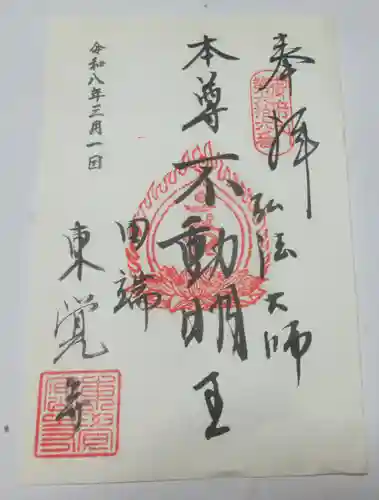 奉拝
弘法大師
本尊 不動明王
田端
東覚寺
令和八年三月一日